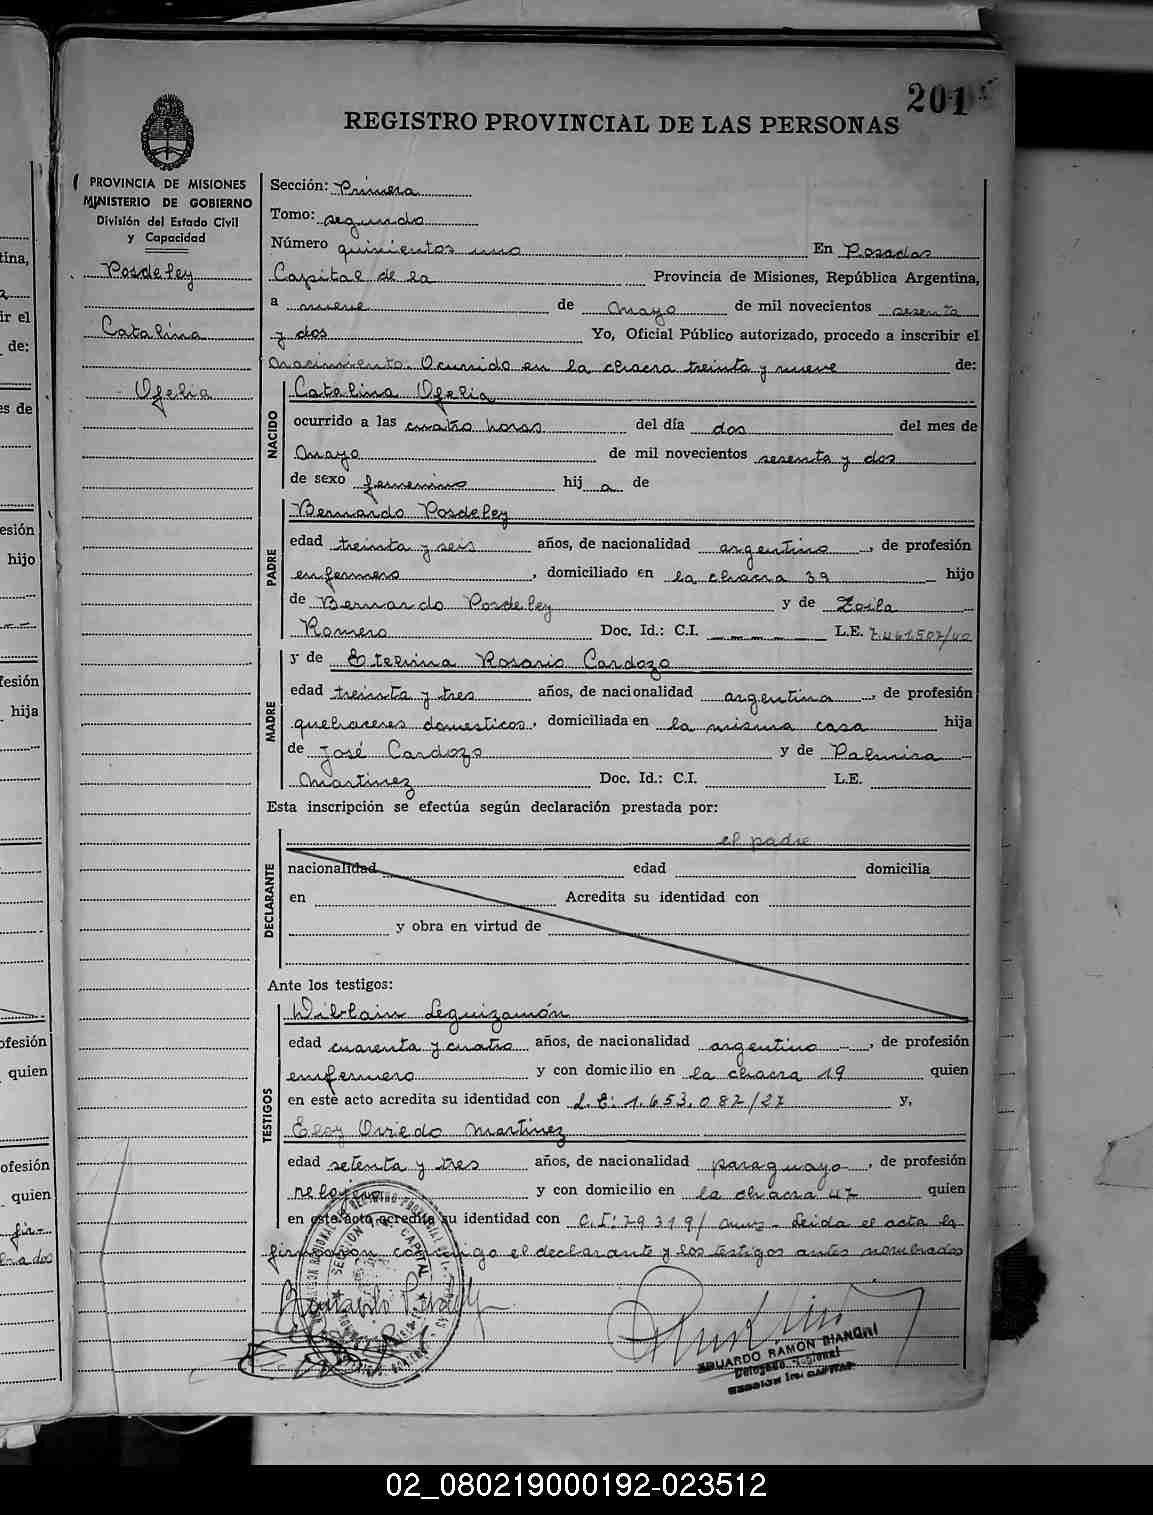 201
REGISTRO PROVINCIAL DE LAS PERSONAS
PROVINCIA DE MISIONES
MINISTERIO DE GOBIERNO
División del Estado Civil
y Capacidad
Posdeley
Catalina
Ofelia
Sección: Primera
Tomo: segundo
Número quinientos uno En Posadas
Capital de la Provincia de Misiones, República Argentina,
a nueve de Mayo de mil novecientos sesenta
y dos Yo, Oficial Público autorizado, procedo a inscribir el
nacimiento. Ocurrido en la chacra treinta y nueve de:
NACIDO
Catalina Ofelia
ocurrido a las cuatro horas del día dos del mes de
Mayo de mil novecientos sesenta y dos
de sexo femenino hij a de
PADRE
Bernardo Posdeley
edad treinta y seis años, de nacionalidad argentino, de profesión
enfermero, domiciliado en la chacra 39 hijo
de Bernardo Posdeley y de Zoila
Romero Doc. Id.: C.I. — — — — — L.E. 7.461.507/40
MADRE
y de Etelvina Rosario Cardozo
edad treinta y tres años, de nacionalidad argentina, de profesión
quehaceres domesticos, domiciliada en la misma casa hija
de José Cardozo y de Palmira
Martinez Doc. Id.: C.I. L.E.
Esta inscripción se efectúa según declaración prestada por:
DECLARANTE
el padre
nacionalidad edad domicilia
en Acredita su identidad con
y obra en virtud de
Ante los testigos:
TESTIGOS
Leguizamón
edad cuarenta y cuatro años, de nacionalidad argentino, de profesión
enfermero y con domicilio en la chacra 19 quien
en este acto acredita su identidad con L.E: 1.653.082/27 y,
Eloy Oviedo Martinez
edad setenta y tres años, de nacionalidad paraguayo, de profesión
relojero y con domicilio en la chacra 47 quien
en este acto acredita su identidad con C.I: 29319/ Leida el acta la
firmaron conmigo el declarante y los testigos antes nombrados
SECCION 1ra. CAPITAL
EDUARDO RAMON BIANCHI
Delegado Regional
SECCION 1ra. CAPITAL
02_080219000192-023512